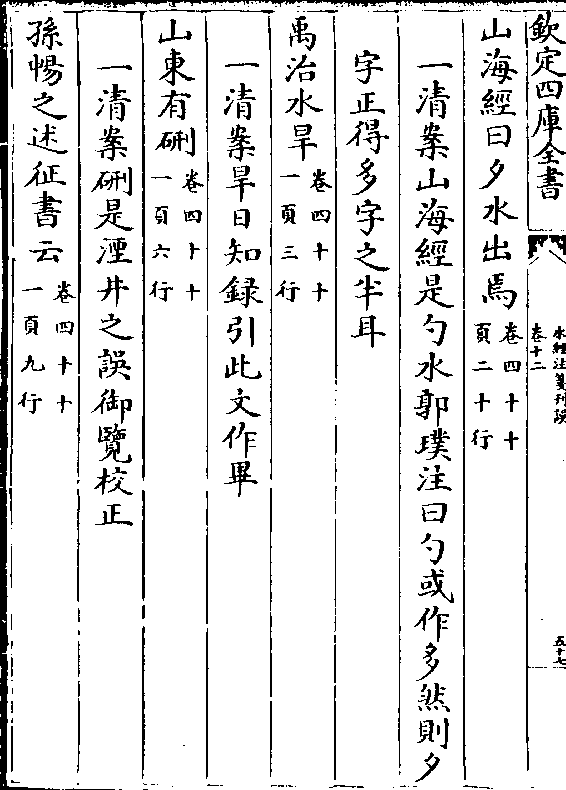 欽定四庫全書
水經注箋刊誤
卷十二
五十七
山海經曰夕水出焉
卷四十十
頁二十行
一清案山海經是勺水郭璞注曰勺或作多然則夕
字正得多字之半耳
禹治水旱
卷四十十
一頁三行
一清案旱日知録引此文作畢
山東有硎
卷四十十
一頁六行
一清案硎是湮井之誤御覽校正
孫暢之述征書云
卷四十十
一頁九行